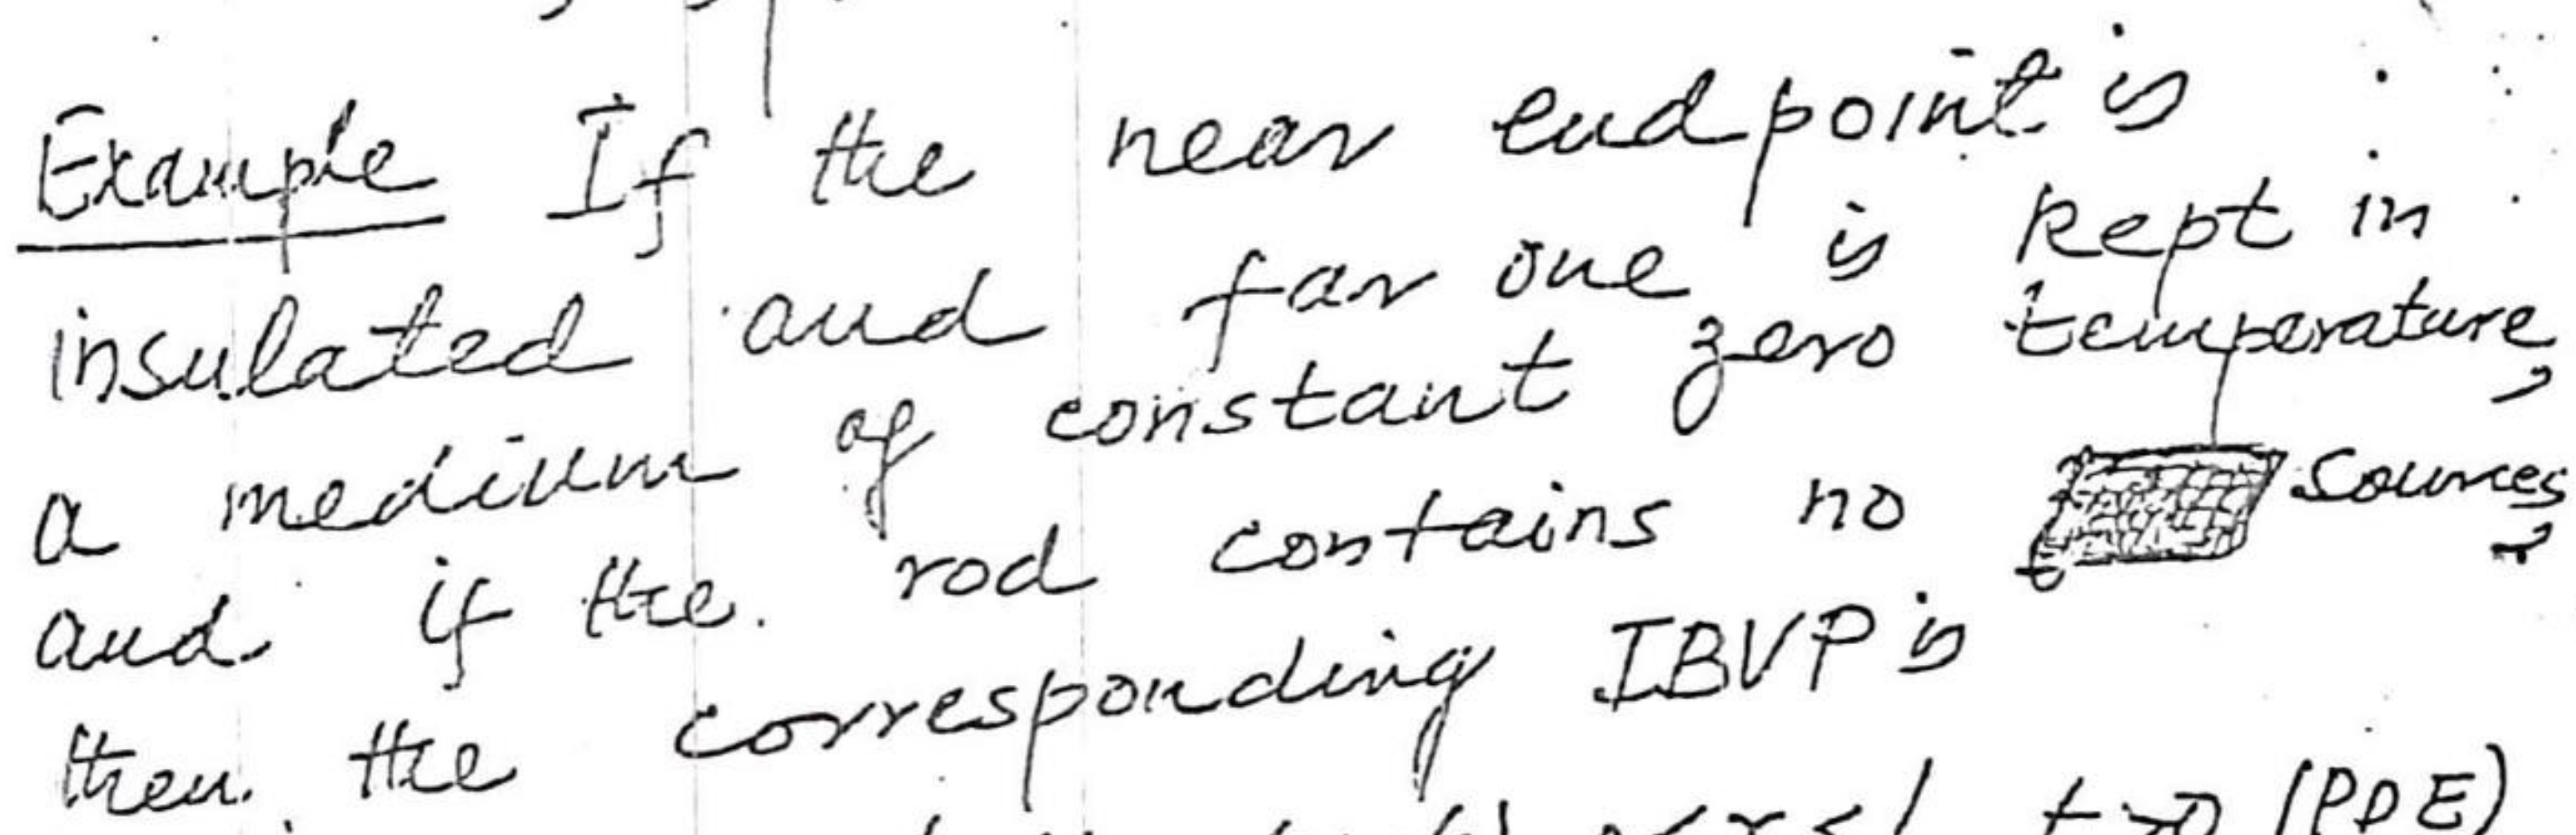 Example If the near endpoint is
insulated and far one is kept in
a medium of constant zero temperature,
and if the rod contains no sources,
then the corresponding IBVP is
t>0 (PDE)